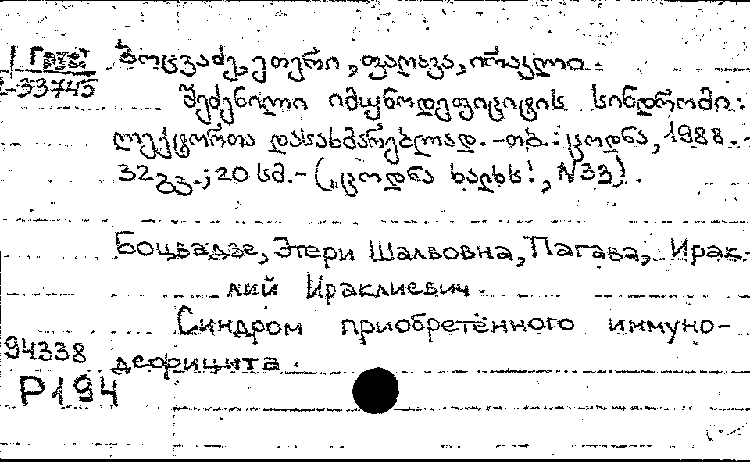 ბოცვაძე, ეთერი, ფაღავა, ირაკლი.
2-33745
შეძენილი იმუნოდეფიციტის სინდრომი:
ლექტორთა დასახმარებლად. -თბ.: ცოდნა, 1988. -
32 გვ.; 20 სმ. - („ცოდნა ხალხს!, N33).
Боцвадзе, Этери Шалвовна, Пагава, Ирак-
лий Ираклиевич.
Синдром приобретённого иммуно-
94338 дефицита.
Р194